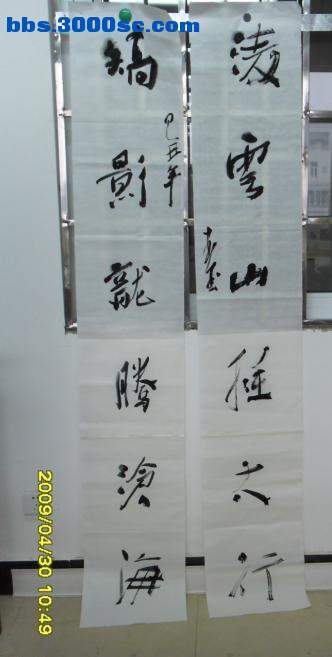 bbs.3000sc.com
淩雲山太行
矯影龍騰滄海
己丑年
2009/04/30 10:49